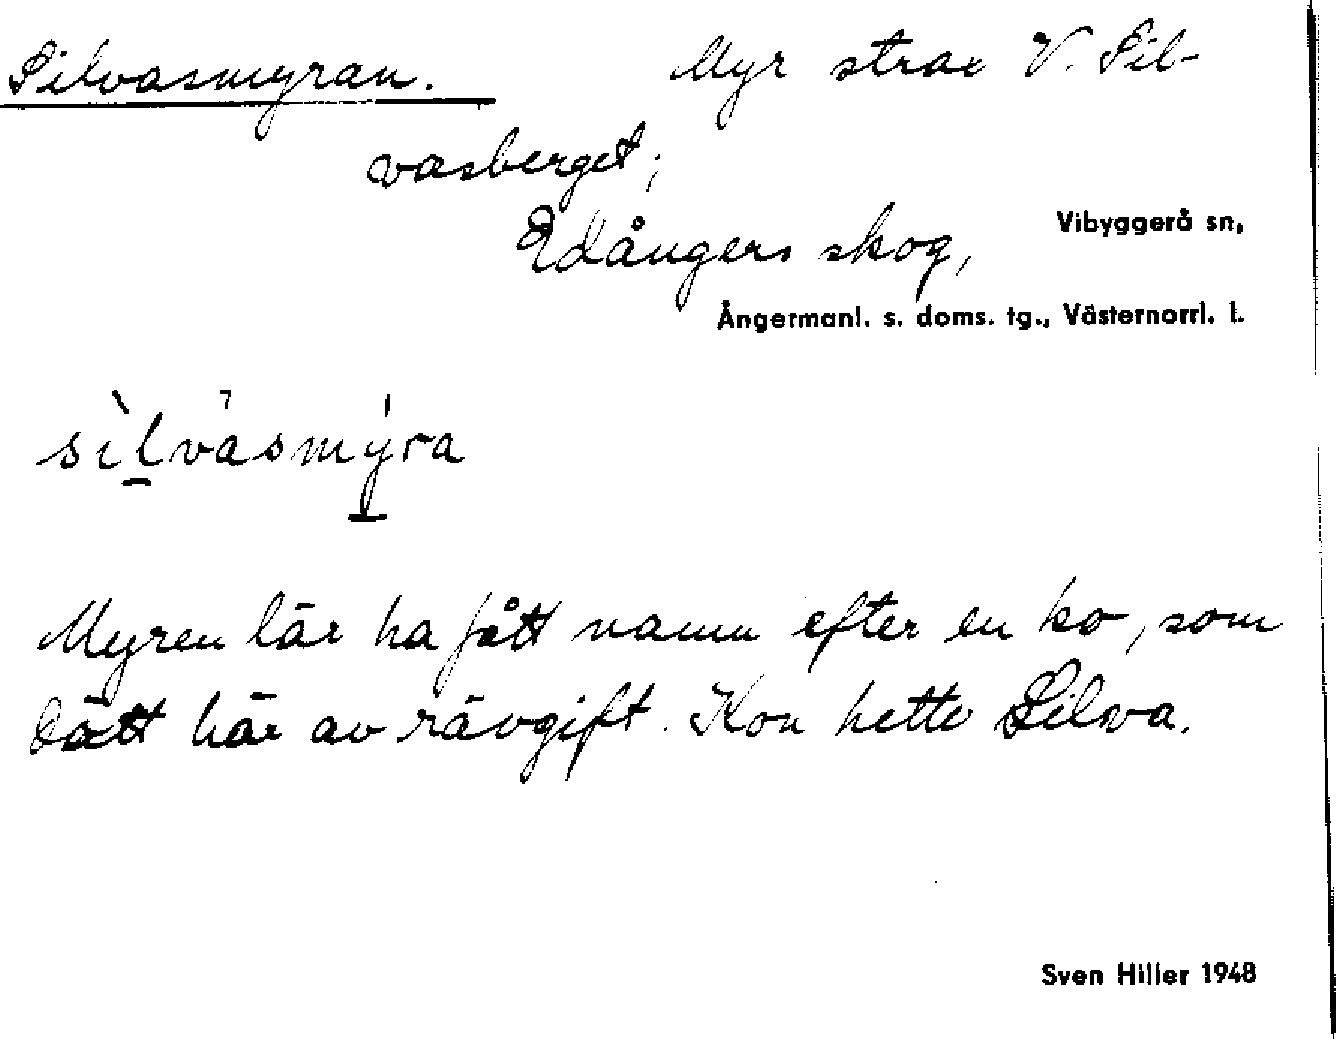 Silvasmyran. Myr strax V. Sil-
vasberget;
Edångers skog,
Vibyggerå sn,
Ångermanl. s. doms. tg., Västernorrl. l.
sìlvàsmýra
Myren lär ha fått namn efter en ko, som
dött här av rävgift. Kon hette Silva.
Sven Hiller 1948